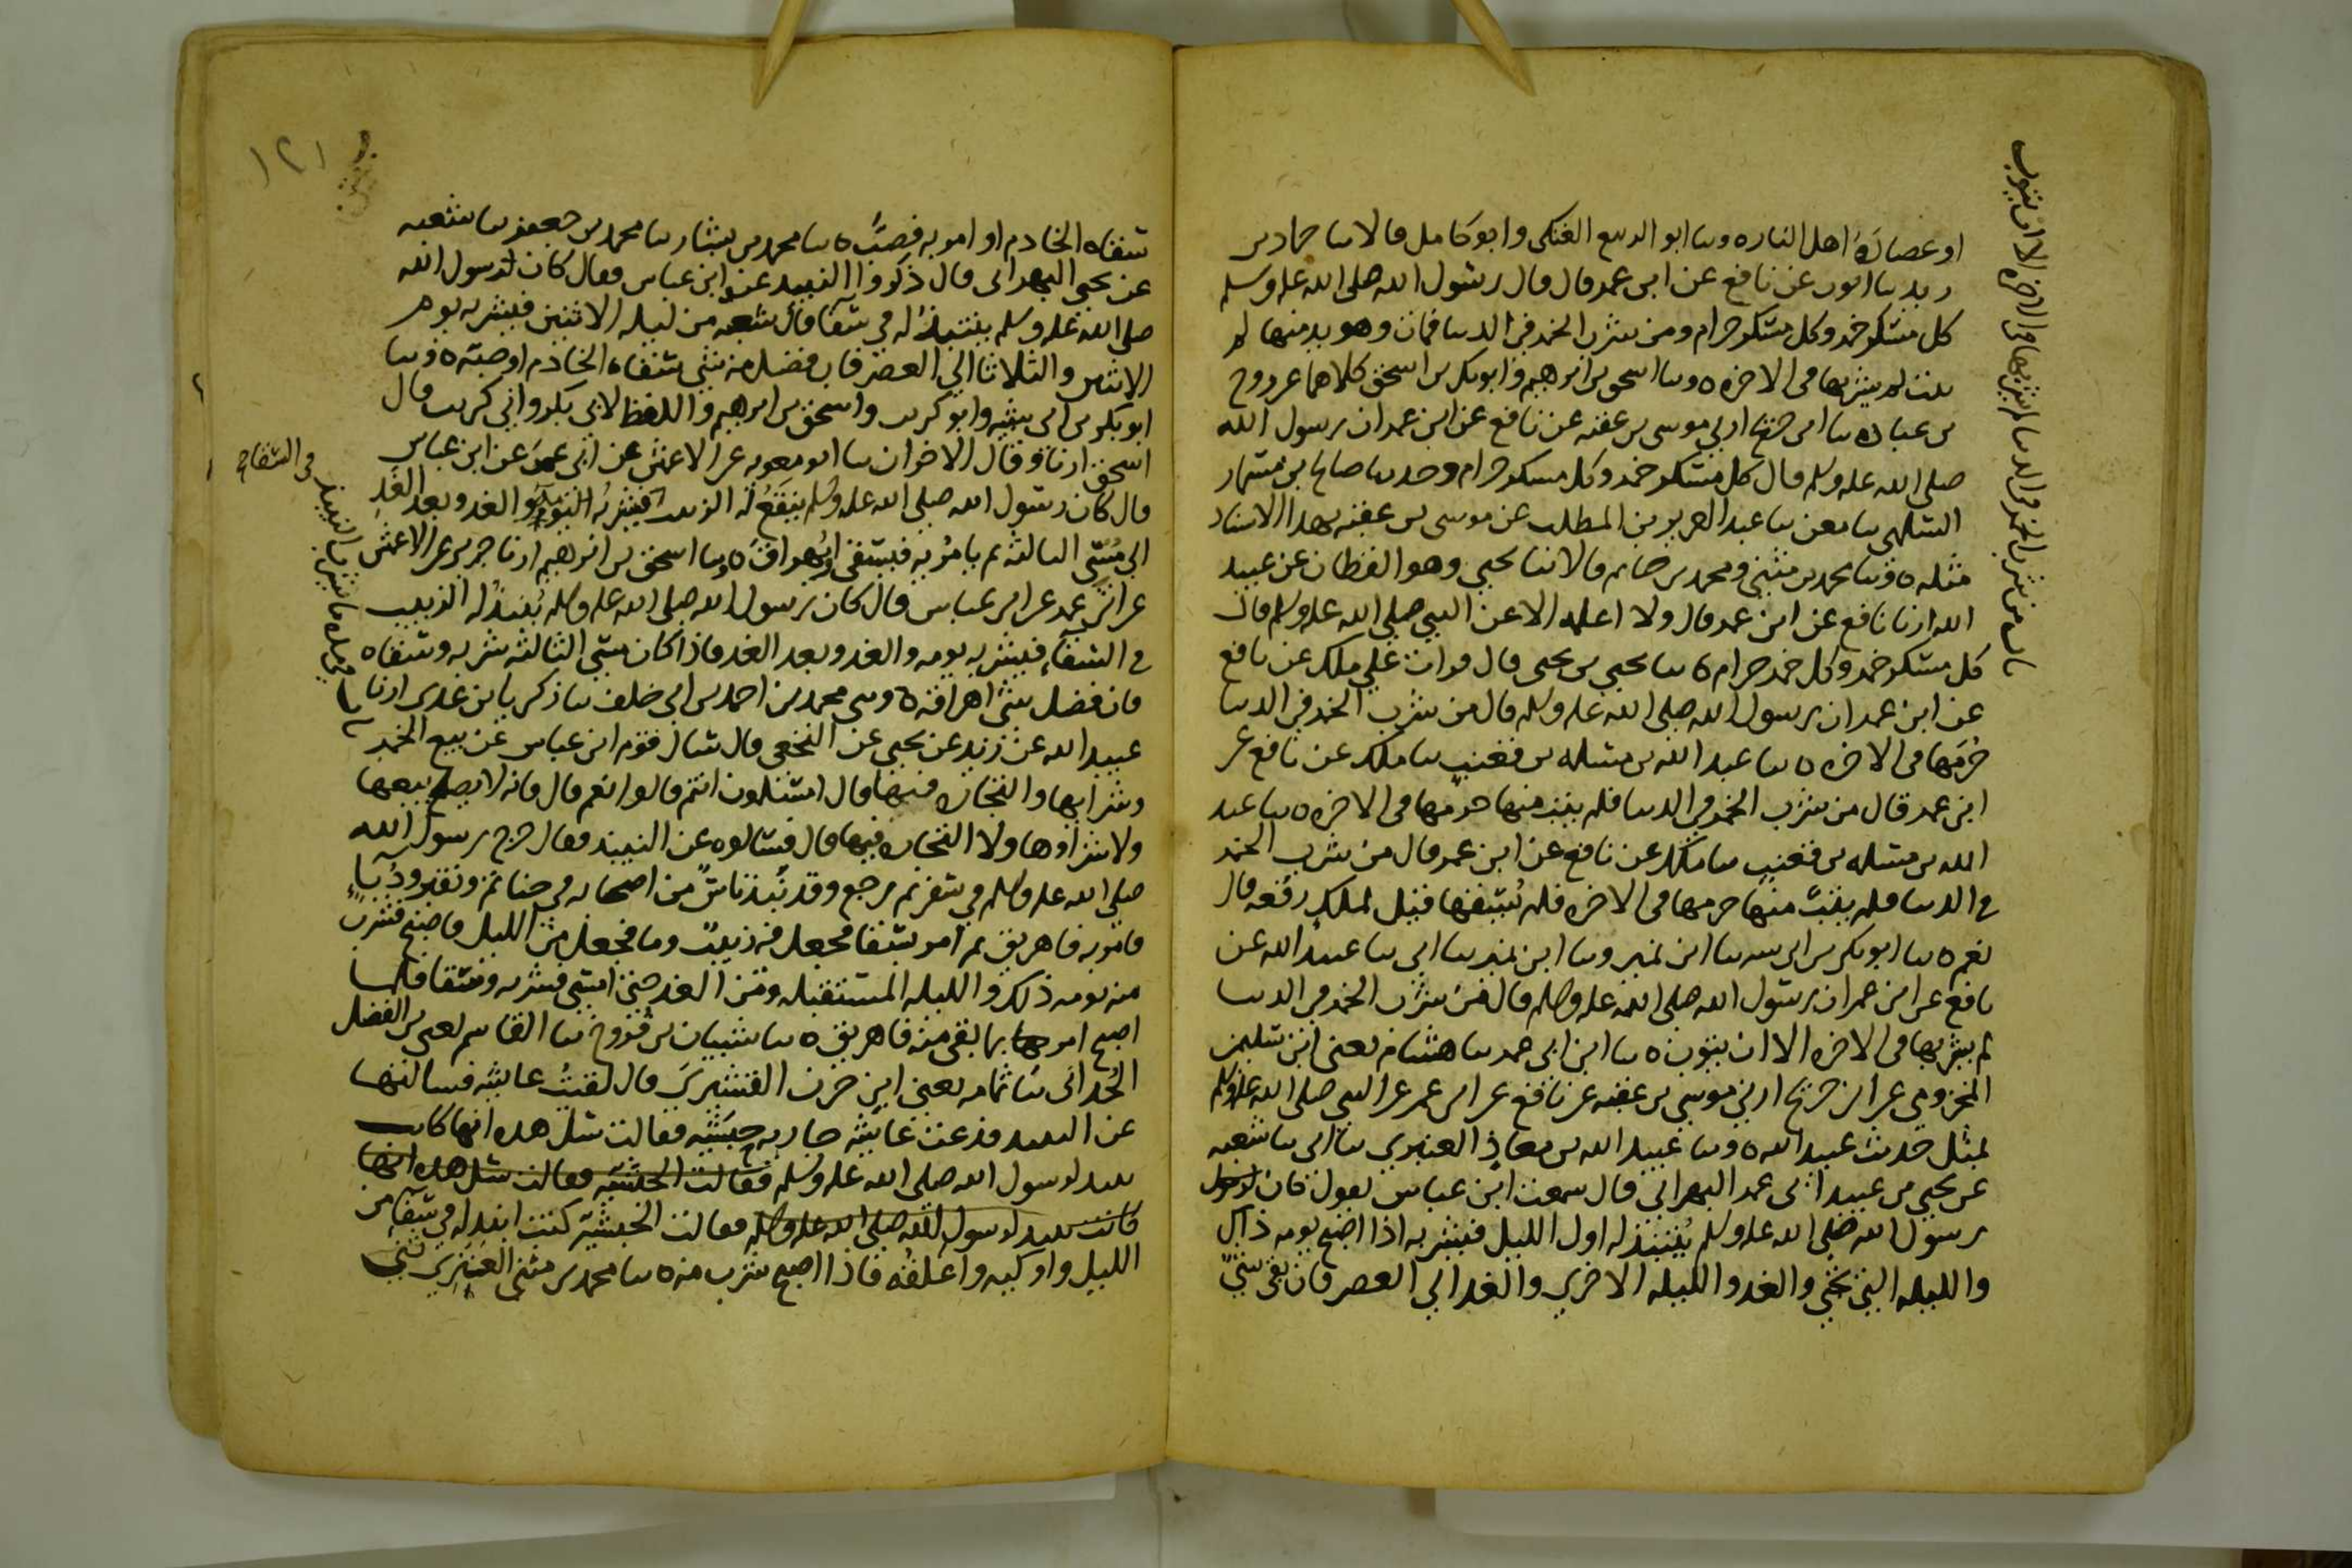 او عصارة اهل النار ٥ وسا ابو الربيع العتكى وابو كامل قالا سا حماد بن
زيد سا ايوب عن نافع عن ابن عمر قال قال رسول الله صلى الله عليه وسلم
كل مسكر خمر وكل مسكر حرام ومن شرب الخمر في الدنيا فمات وهو يدمنها لم
يتب لم يشربها في الاخره ٥ وسا اسحق بن ابرهيم وابو بكر بن اسحق كلاهما عن روح
بن عباده سا ابن جريج ارني موسى بن عقبه عن نافع عن ابن عمر ان رسول الله
صلى الله عليه وسلم قال كل مسكر خمر وكل مسكر حرام وحدثنا صالح بن مسمار
السلمي سا معن سا عبد العزيز بن المطلب عن موسى بن عقبه بهذا الاسناد
مثله ٥ وسا محمد بن مثنى ومحمد بن حاتم قالا سا يحيى وهو القطان عن عبيد
الله ارنا نافع عن ابن عمر قال ولا اعلمه الا عن النبي صلى الله عليه وسلم قال
كل مسكر خمر وكل خمر حرام ٥ سا يحيى بن يحيى قال قرات على ملك عن نافع
عن ابن عمر ان رسول الله صلى الله عليه وسلم قال من شرب الخمر في الدنيا
حُرمها في الاخره ٥ سا عبد الله بن مسلمه بن قعنب سا ملك عن نافع عن
ابن عمر قال من شرب الخمر في الدنيا فلم يتب منها حرمها في الاخره ٥ سا عبد
الله بن مسلمه بن قعنب سا ملك عن نافع عن ابن عمر قال من شرب الخمر
في الدنيا فلم يتب منها حرمها في الاخره فلم يُسقها قيل لملك رفعه قال
نعم ٥ سا ابو بكر بن ابى شيبه سا ابن نمير وسا ابن نمير سا ابى سا عبيد الله عن
نافع عن ابن عمر ان رسول الله صلى الله عليه وسلم قال من شرب الخمر في الدنيا
لم يشربها في الاخره الا ان يتوب ٥ سا ابن ابى عمر سا هشام يعنى ابن سليمن
المخزومي عن ابن جريج ارني موسى بن عقبه عن نافع عن ابن عمر عن النبي صلى الله عليه وسلم
بمثل حديث عبيد الله ٥ وسا عبيد الله بن معاذ العنبري سا ابى سا شعبه
عن يحيى بن عبيد ابى عمر البهراني قال سمعت ابن عباس يقول كان
رسول الله صلى الله عليه وسلم يُنتبذ له اول الليل فيشربه اذا اصبح يومه ذاك
والليله التى تجي والغد والليله الاخرى والغد الى العصر فان بقى شىٌ
باب من شرب الخمر في الدنيا لم يشربها في الاخره الا ان يتوب
١٢١
سقاه الخادم او امر به فصبّ ٥ سا محمد بن بشار سا محمد بن جعفر سا شعبه
عن يحيى البهرانى قال ذكروا النبيذ عند ابن عباس فقال كان رسول الله
صلى الله عليه وسلم ينتبذ له في سقا قال شعبه من ليله الاثنين فيشربه يوم
الاثنين والثلاثا الى العصر فان فضل منه شى سقاه الخادم او صبّه ٥ وسا
ابو بكر بن ابى شيبه وابو كريب واسحق بن ابرهيم واللفظ لابى بكر وابي كريب قال
اسحق ارنا وقال الاخران سا ابو معويه عن الاعمش عن ابى عمر عن ابن عباس
قال كان رسول الله صلى الله عليه وسلم يُنقَعُ له الزبيب فيشربُه اليوم والغد وبعد الغدِ
الى مُسي الثالثه ثم يامُر به فيسقى او يُهراق ٥ وسا اسحق بن ابرهيم ارنا جرير عن الاعمش
عن ابى عمر عن ابن عباس قال كان رسول الله صلى الله عليه وسلم يُنبذ له الزبيب
في السقاء فيشربه يومه والغد وبعد الغد فاذا كان مسي الثالثه شربه وسقاه
فان فضل شى اهراقه ٥ وسى محمد بن احمد بن ابى خلف سا زكريا بن عدى ارنا
عبيد الله عن زيد عن يحيى عن النخعى قال سال قوم ابن عباس عن بيع الخمر
وشرايها والتجاره فيها قال امسلمون انتم قالوا نعم قال فانه لا يصلح بيعها
ولا شراوها ولا التجاره فيها قال فسالوه عن النبيذ فقال خرج رسول الله
صلى الله عليه وسلم في سفر ثم رجع وقد نبذ ناسٌ من اصحابه في حناتم ونقير ودُبّاءٍ
فامر به فاهريق ثم امر بسقا فجعل فيه زبيب وما فجعل من الليل فاصبح فشرب
منه يومه ذلك والليله المستقبله ومن الغد حتى امسى فشرب وسقا فلما
اصبح امر بما بقى منه فاهريق ٥ سا شيبان بن فروخ سا القاسم يعنى بن الفضل
الحُدانى سا ثمامه يعنى ابن حزن القشيرى قال لقيتُ عايشه فسالتها
عن النبيذ فدعت عايشه جاريه حبشيه فقالت سل هذه انها كانت
تنبذ لرسول الله صلى الله عليه وسلم فقالت الحبشيه فقالت سل هذه انها
كانت تنبذ لرسول الله صلى الله عليه وسلم فقالت الحبشية كنت انبذ له في سقا من
الليل واوكيه واعلقه فاذا اصبح شرب منه ٥ سا محمد بن مثنى العنزى سى